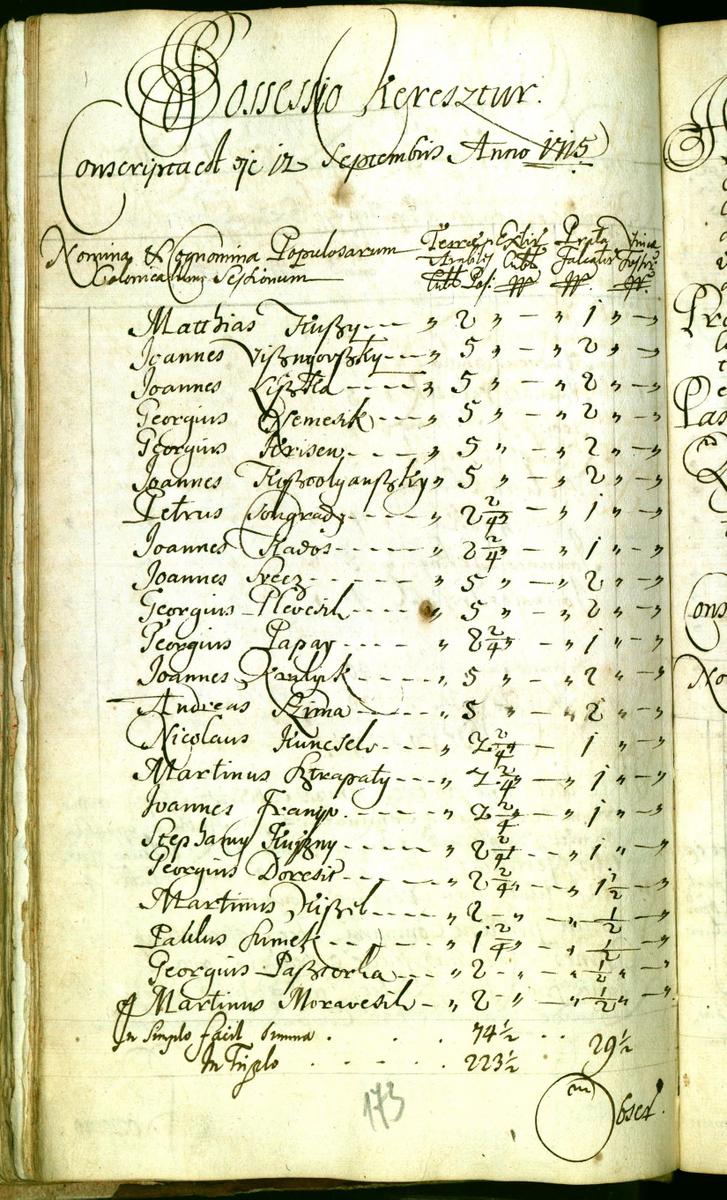 Possessio Keresztur.
Conscripta est die 12 Septembris Anno 1715
Nomina & Cognomina Populosarum
Colonicalium Sessionum
Terræ Extir Prata Vinea
Arabiles Cubb Falcator Fossor
Cubb Pos:
Matthias Kuszy ---- „ 2 „ – „ 1 „ – „
Joannes Visznyovszky --- „ 5 „ – „ 2 „ – „
Joannes Liszka ----- „ 5 „ – „ 2 „ – „
Georgius ---- „ 5 „ – „ 2 „ – „
Georgius Krisen ---- „ 5 „ – „ 2 „ – „
Joannes „ 5 „ – „ 2 „ – „
Petrus Csongrady ---- „ 2 2/4 „ – „ 1 „ – „
Joannes Kados ----- „ 2 2/4 „ – „ 1 „ – „
Joannes ------ „ 5 „ – „ 2 „ – „
Georgius Plevesik ---- „ 5 „ – „ 2 „ – „
Georgius Papay ---- „ 2 2/4 „ – „ 1 „ – „
Joannes Kralyik ---- „ 5 „ – „ 2 „ – „
Andreas Szima ---- „ 5 „ – „ 2 „ – „
Nicolaus Kuncsel ---- „ 2 2/4 – 1 „ – „
Martinus Sztrapaty ---- „ 2 2/4 „ – „ 1 „ – „
Joannes ----- „ 2 2/4 „ – „ 1 „ – „
Stephany ----- „ 2 2/4 – „ 1 „ – „
Georgius Doresit ---- „ 2 2/4 „ – „ 1 1/2 „ – „
Martinus Kiszel ---- „ 2 – „ „ 1/2 – „
Paulus Simek ---- „ 1 2/4 „ – „ 1/2 – „
Georgius Paszterka --- „ 2 – „ – „ 1/2 „ – „
Martinus Moravcsik – „ 2 – „ – „ 1/2 „ – „
In Simplo facit Summa . . . 74 1/2 . . 29 1/2
In Triplo . . . . 223 1/2
173
Obser